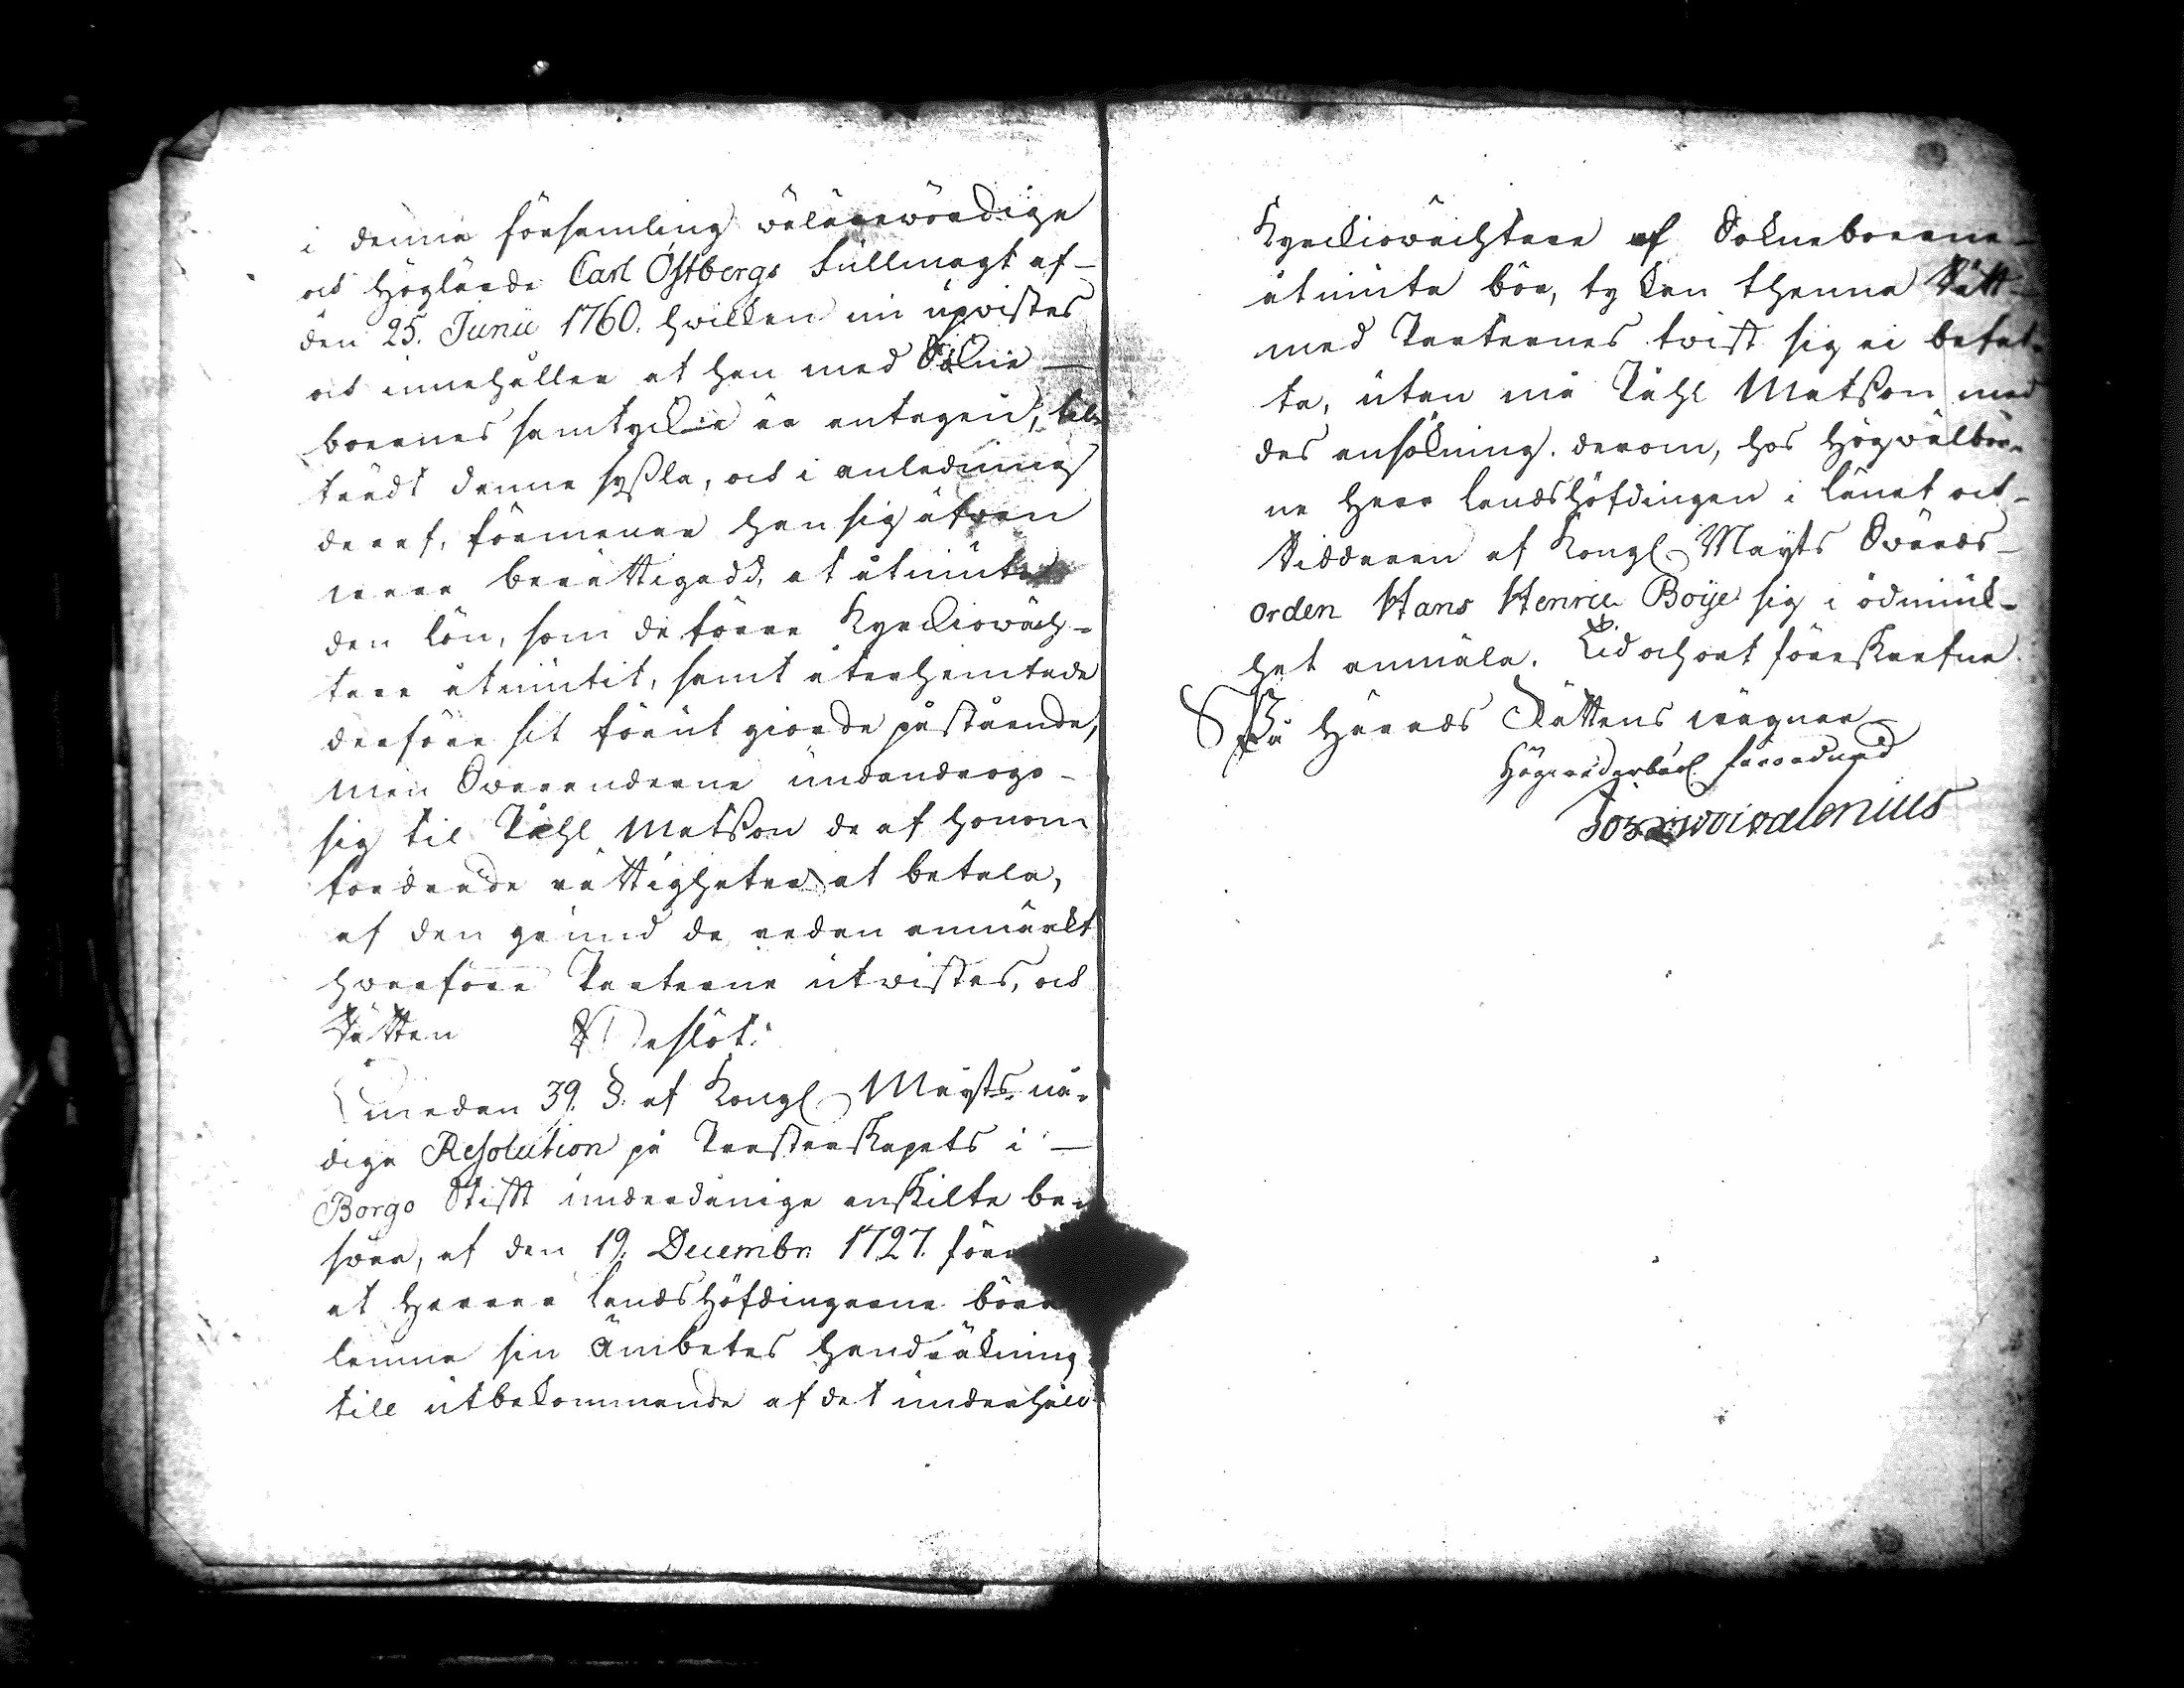 i denna församling wälärewördige
och Höglärde Carl Östbergs fullmagt af
den 25. Junii 1760. hwilken nu upwistes
och innehåller at han med Sokne
boernes samtyckie är antagen, til
trädt denna syßla, och i anledning
deraf, förmenar han sig äfwen
wara berättigadd, at åtniuta
den lön, som de förre Kyrckiowäch-
tare åtniutit, samt återhemtade
derföre sit förut giorde påstående,
Men Swaranderne undandrogo
sig til Påhl Matßon de af honom
fordrade rättigheter at betala,
af den grund de redan anmärkt
hwarföre Parterne utwistes, och
Rätten Beslöt:
Emedan 39. §. af Kongl Mayts nå-
dige Resolution på Prästerskapets i
Borgo Stift underdånige enskilte be-
swär, af den 19. Decembr. 1727. för
at Herrar Landshöfdingarne böra
lemna sin Ämbetes handräkning
till utbekommande af det underhåld
Kyrckiowächtare af Sokneboerne
åtniuta bör, ty kan thenna Rätt
med Parternes twist sig ei befat-
ta, utan må Påhl Matßon med
des ansökning derom, hos Högwälbor-
ne Herr Landshöfdingen i länet och
Riddaren af Kongl Mayts Swärds-
orden Hans Henric Boije sig i ödmiuk-
het anmäla. Tid och ort föreskrefne.
På Härads Rättens wägnar